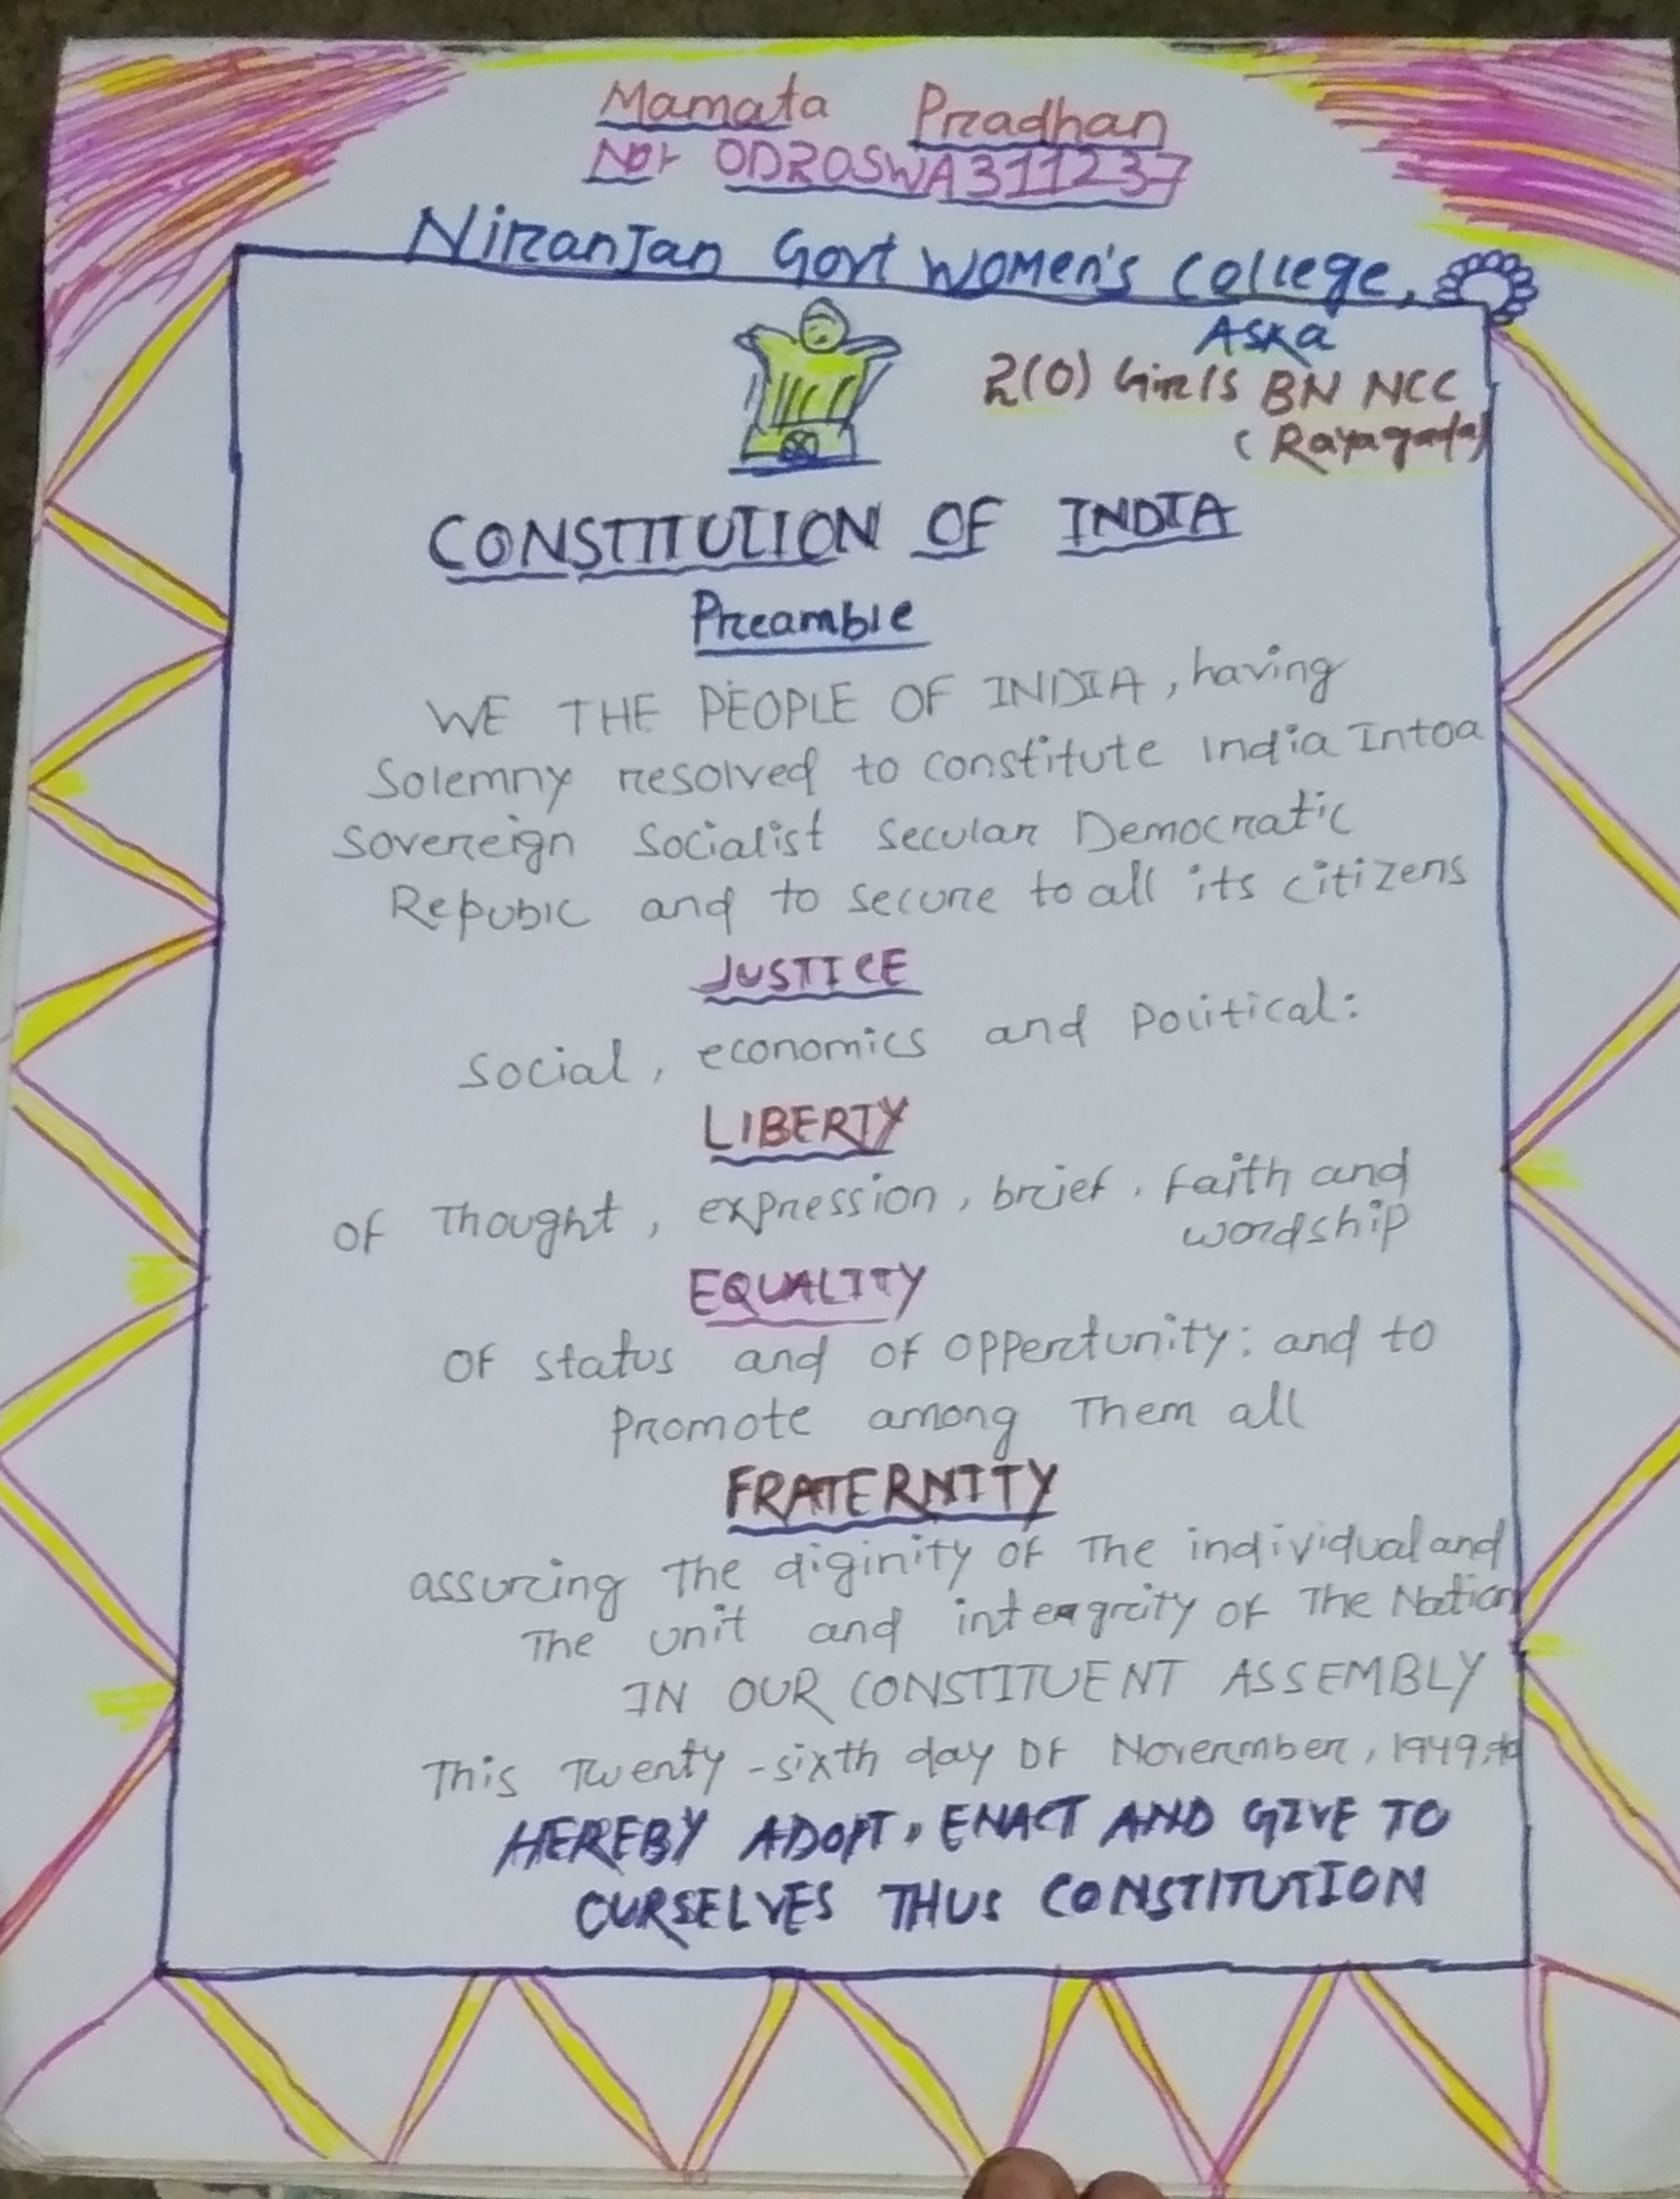 Mamata Pradhan
No:- OD20SWA311237
Niranjan Govt Women's College,
Aska
2(O) Girls BN NCC
(Rayagada)
CONSTITUTION OF INDIA
Preamble
WE THE PEOPLE OF INDIA, having
Solemny resolved to constitute India Into a
Sovereign Socialist Secular Democratic
Repubic and to secure to all its citizens
JUSTICE
Social, economics and Political:
LIBERTY
OF Thought, expression, brief, Faith and
wordship
EQUALITY
OF status and of oppertunity; and to
Promote among Them all
FRATERNITY
assuring The diginity OF The individual and
The unit and intergrity OF The Nation
IN OUR CONSTITUENT ASSEMBLY
This Twenty-sixth day OF Novermber, 1949, do
HEREBY ADOPT, ENACT AND GIVE TO
OURSELVES THUS CONSTITUTION